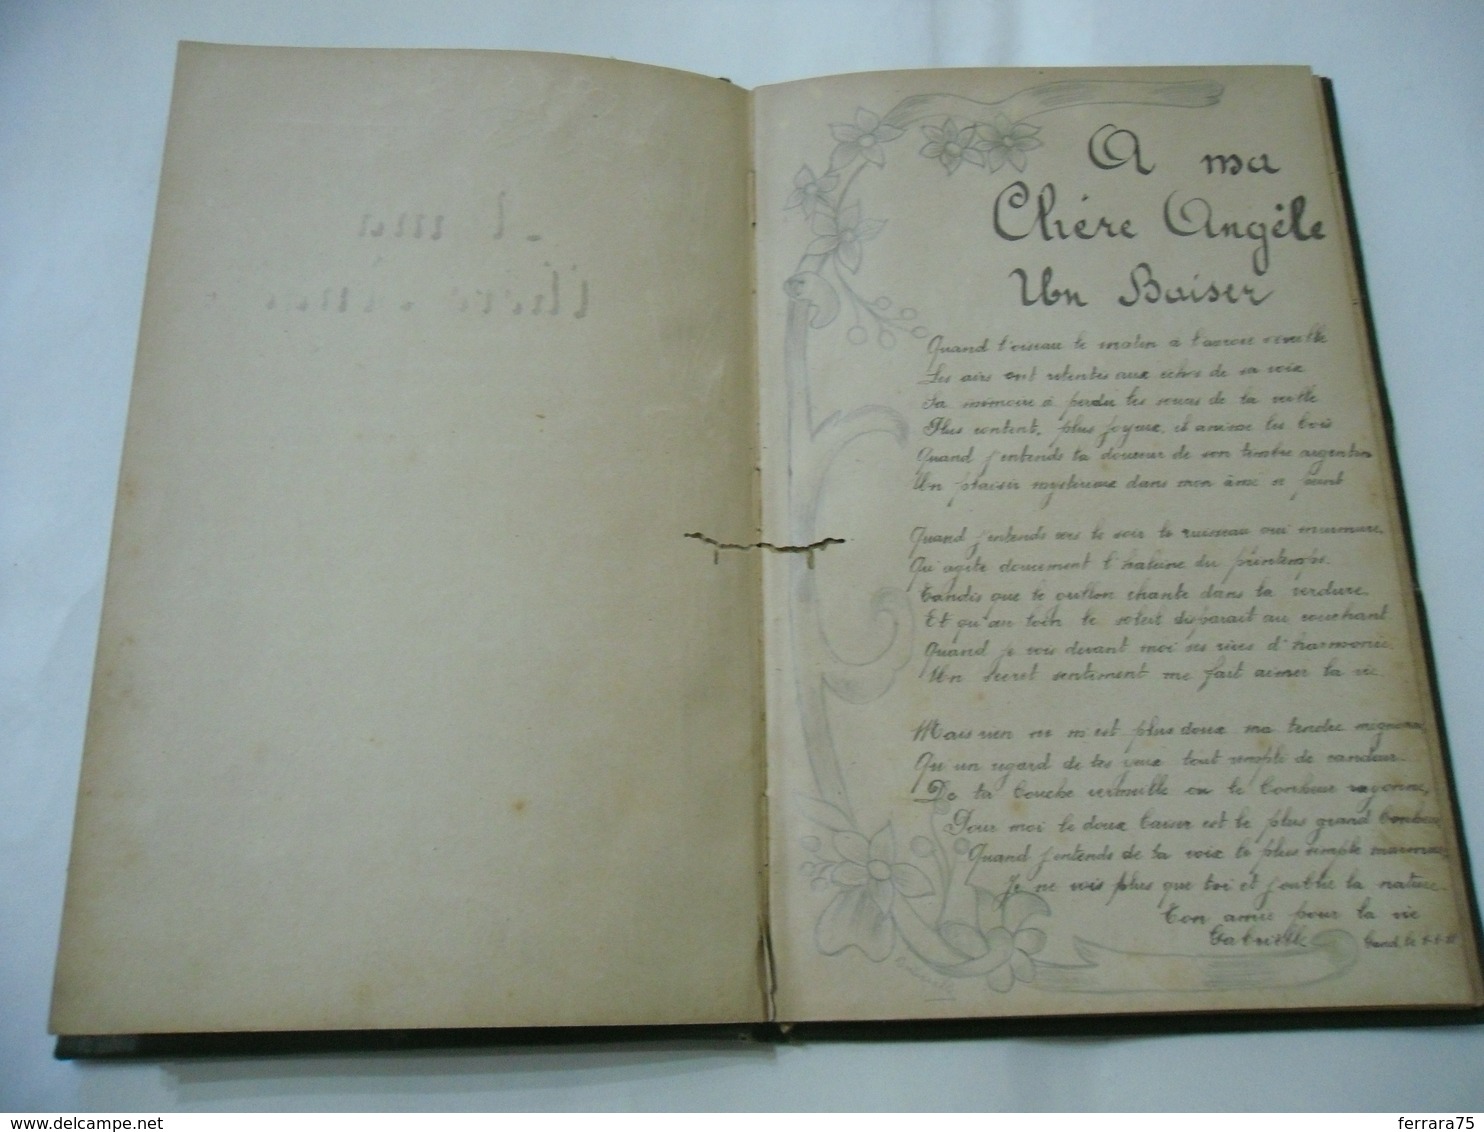 A ma
Chère Angèle
Un Baiser
Quand l'oiseau le matin à l'aurore s'éveille
Les airs ont retentis aux échos de sa voix
Sa mémoire a perdu les soucis de la veille
Plus content, plus joyeux, il anime les bois
Quand j'entends la douceur de son timbre argentin
Un plaisir mystérieux dans mon âme
Quand j'entends vers le soir le ruisseau qui murmure,
Qu'agite doucement l'haleine du printemps.
Tandis que le chante dans la verdure.
Et qu'au loin le soleil disparait au couchant
Quand je vois devant moi ses rives d'harmonie
Un secret sentiment me fait aimer la vie.
Mais rien ne m'est plus doux ma tendre mignonne,
Qu'un regard de tes yeux tout rempli de candeur.
De ta bouche vermeille ou le bonheur rayonne,
Pour moi le doux baiser est le plus grand bonheur,
Quand j'entends de ta voix le plus simple murmure,
Je ne vois plus que toi et j'oublie la nature.
Ton amie pour la vie
Gabrielle Gand, le
delcampe.net
ferrara75